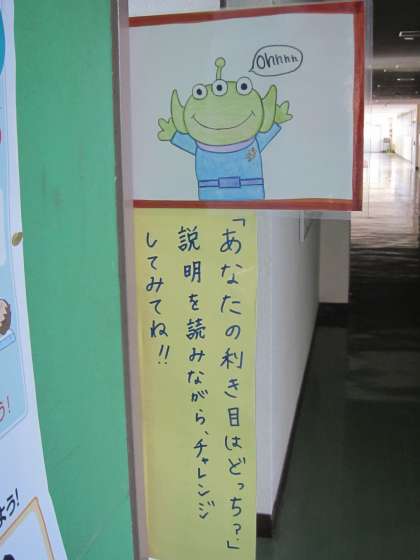 ohhhh
「あなたの利き目はどっち？」
説明を読みながら、チャレンジ
してみてね!!
う！
よう！